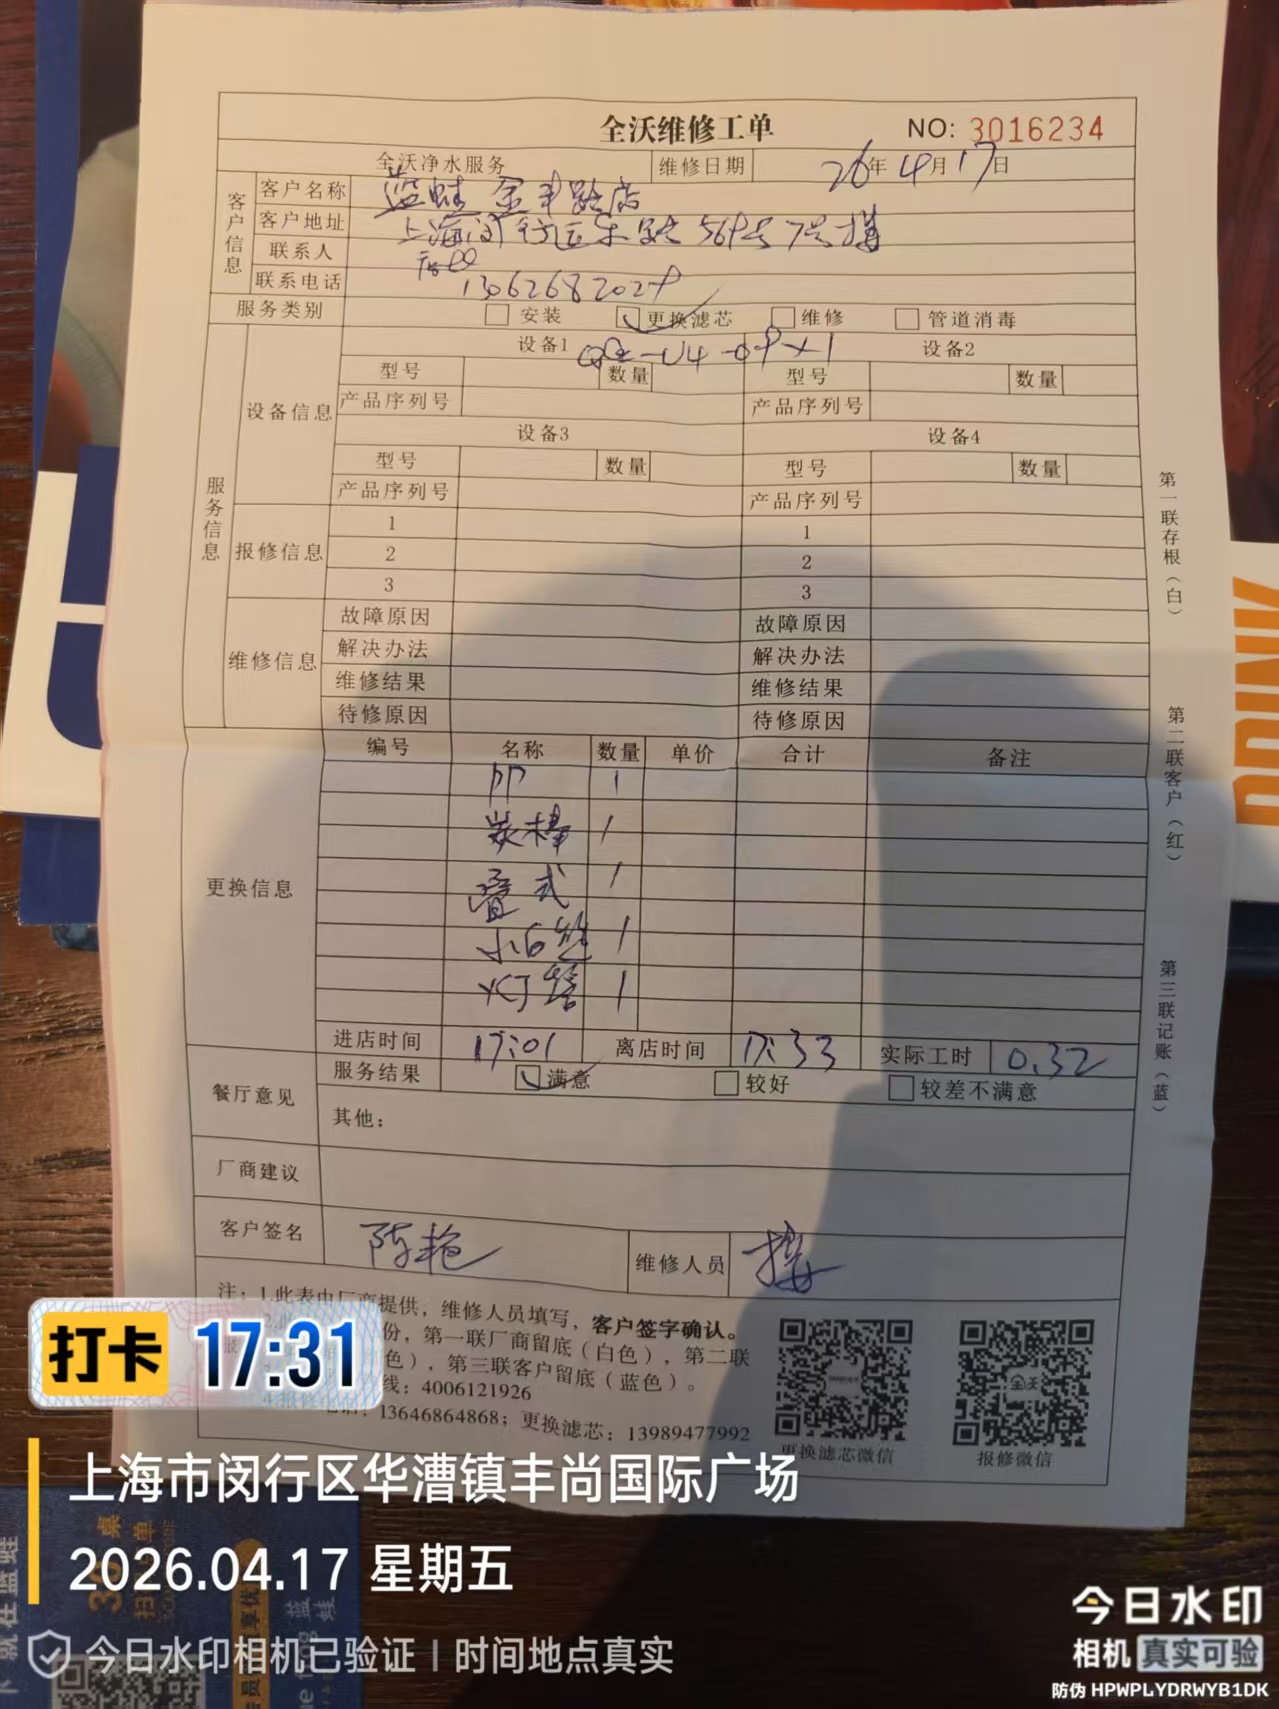 全沃维修工单 NO: 3016234
全沃净水服务 维修日期 26年4月17日
客户信息
客户名称 蓝蛙 金丰路店
客户地址 上海闵行区乐 路 569号7号楼
联系人
联系电话 13062682029
服务类别 安装 更换滤芯 维修 管道消毒
服务信息
设备信息
设备1 -U4-09×1 设备2
型号 数量 型号 数量
产品序列号 产品序列号
设备3 设备4
型号 数量 型号 数量
产品序列号 产品序列号
报修信息
1 1
2 2
3 3
维修信息
故障原因 故障原因
解决办法 解决办法
维修结果 维修结果
待修原因 待修原因
更换信息
编号 名称 数量 单价 合计 备注
PP 1
炭棒 1
叠式 1
小白 1
灯管 1
进店时间 17:01 离店时间 17:33 实际工时 0.32
餐厅意见
服务结果 满意 较好 较差不满意
其他:
厂商建议
客户签名 陈艳 维修人员
注:1.此表由厂商提供,维修人员填写,客户签字确认。
份,第一联厂商留底(白色),第二联
色),第三联客户留底(蓝色)。
线:4006121926
13646864868;更换滤芯:13989477992
更换滤芯微信 报修微信
全沃
第一联存根(白)
第二联客户(红)
第三联记账(蓝)
DRINK
打卡 17:31
上海市闵行区华漕镇丰尚国际广场
2026.04.17 星期五
今日水印相机已验证 | 时间地点真实
今日水印
相机 真实可验
防伪 HPWPLYDRWYB1DK